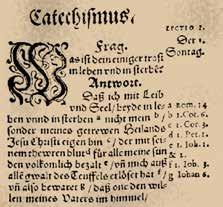 Catechismus.
LECTIO 1.
Frag.
Der 1.
Sontag.
Was ist dein einiger trost
im leben vnd in sterbē?
Antwort.
Daß ich mit Leib
vnd Seel / beyde in le=
ben vnnd in sterben nicht mein /
sonder meines getrewen Heilands
Jesu Christi eigen bin / der mit sei=
nem thewren blut für alle meine sün
den volkomlich bezalt / vñ mich auß
allē gwalt des Teuffels erlöset hat /
vñ also bewaret / daß one den wil=
len meines Vaters im himmel /
a Rom. 14
b 1. Cor. 6
c 1. Cor. 3
d 1. Pet. 1
e 1. Joh. 1
& 2.
f 1. Joh. 3
g Johan 6.